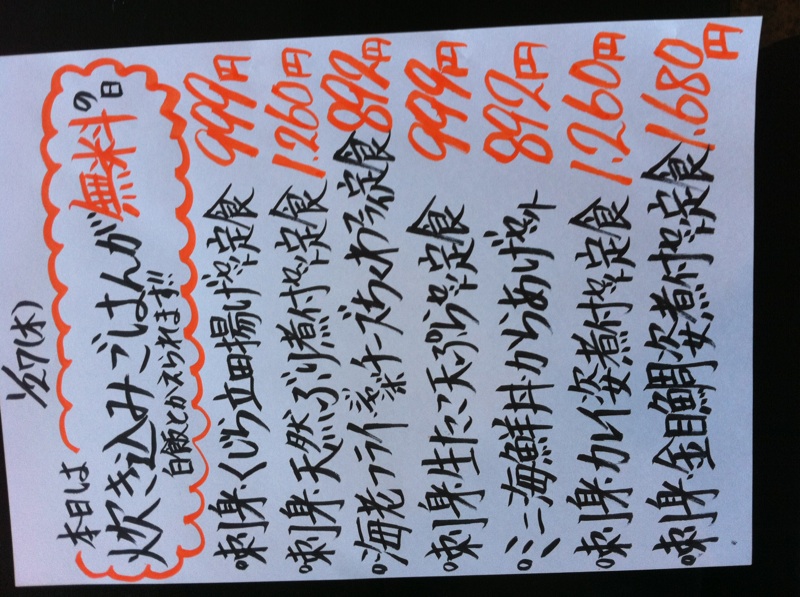 1/27(木)
本日は
炊き込みごはんが無料の日
白飯とかえられます!!
刺身・くじら立田揚げセット定食 999円
刺身・天然ぶり煮付セット定食 1.260円
海老フライ・チーズちくわフライ定食 892円
刺身・生たこ天ぷらセット定食 999円
ミニ海鮮丼・からあげセット 892円
刺身・カレイ姿煮付セット定食 1.260円
刺身・金目鯛姿煮付セット定食 1.680円